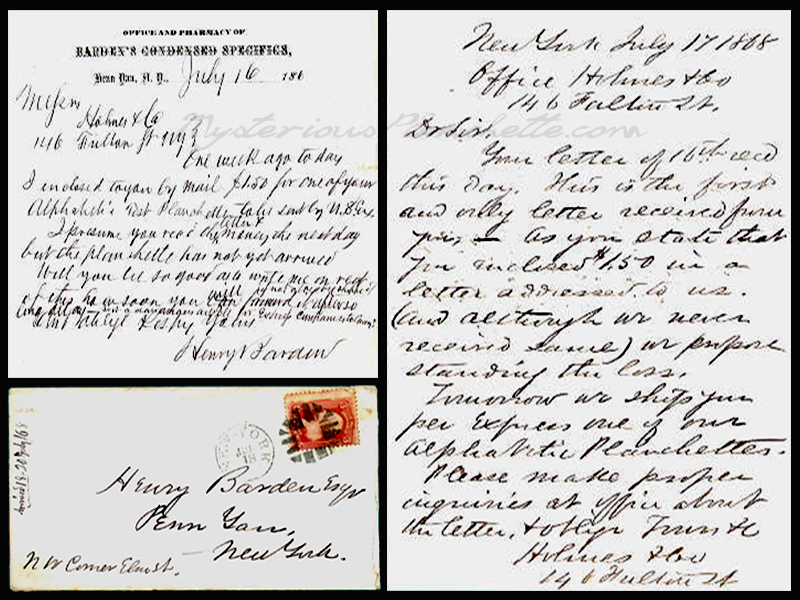 OFFICE AND PHARMACY OF
BARDEN'S CONDENSED SPECIFICS,
Penn Yan, N. Y., July 16 186
Messrs
Holmes & Co
146 Fulton St NY
One week ago to day
I inclosed to you by mail $1.50 for one of your
Alphabetic Planchette to be sent by U.S. Ex.
letter &
I presume you recd the money the next day
but the planchette has not yet arrived
Will you be so good as to write me on rect
of this how soon you will forward it
Henry Barden
MysteriousPlanchette.com
New York July 17 1868
Office Holmes & Co
146 Fulton St.
Dr Sir.
Your letter of 16th recd
this day. This is the first
and only letter received from
you — As you state that
you inclosed $1.50 in a
letter addressed to us
(and although we never
received same) we propose
standing the loss.
Tomorrow we ship you
per Express one of our
Alphabetic Planchettes.
Please make proper
inquiries at office about
the letter, & oblige Yours &c
Holmes & Co
146 Fulton St
NEW YORK
Henry Barden Esqr
Penn Yan,
New York.
N W Corner Elm st.